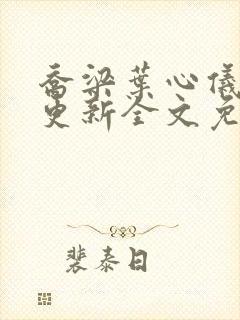 乔梁葉心儀
更新全文免
裴泰日